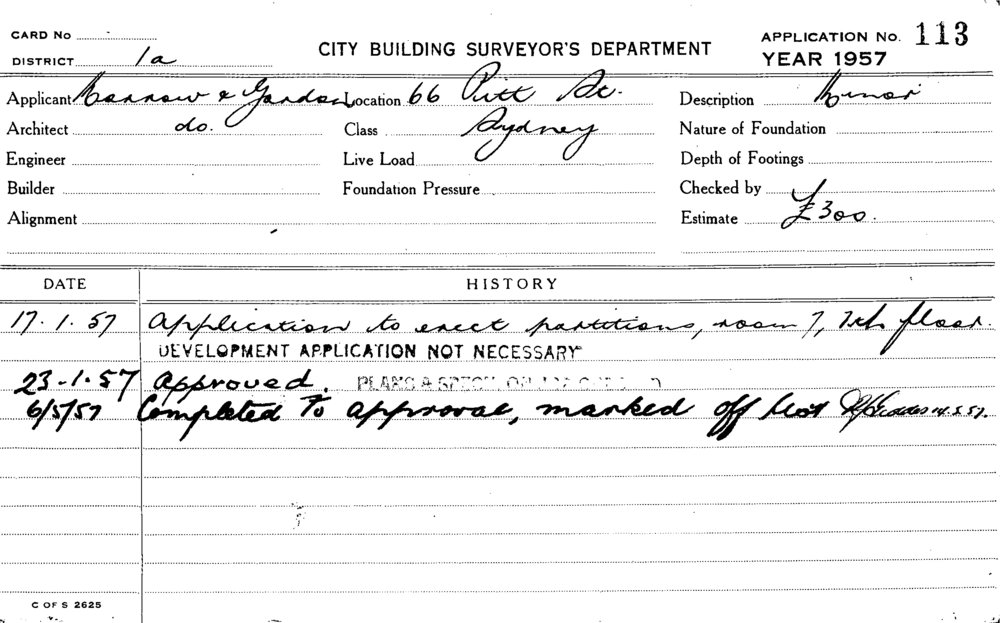 CARD No
CITY BUILDING SURVEYOR'S DEPARTMENT
APPLICATION No. 113
DISTRICT 1a
YEAR 1957
Applicant & Gordon Location 66 Pitt St. Description Minor
Architect do. Class Sydney Nature of Foundation
Engineer Live Load Depth of Footings
Builder Foundation Pressure Checked by
Alignment Estimate £300.
DATE HISTORY
17.1.57 Application to erect partitions, room 7, 7th floor.
DEVELOPMENT APPLICATION NOT NECESSARY
23-1-57 Approved. PLANS &
6/5/57 Completed to approval, marked off list 14.5.57.
C OF S 2625